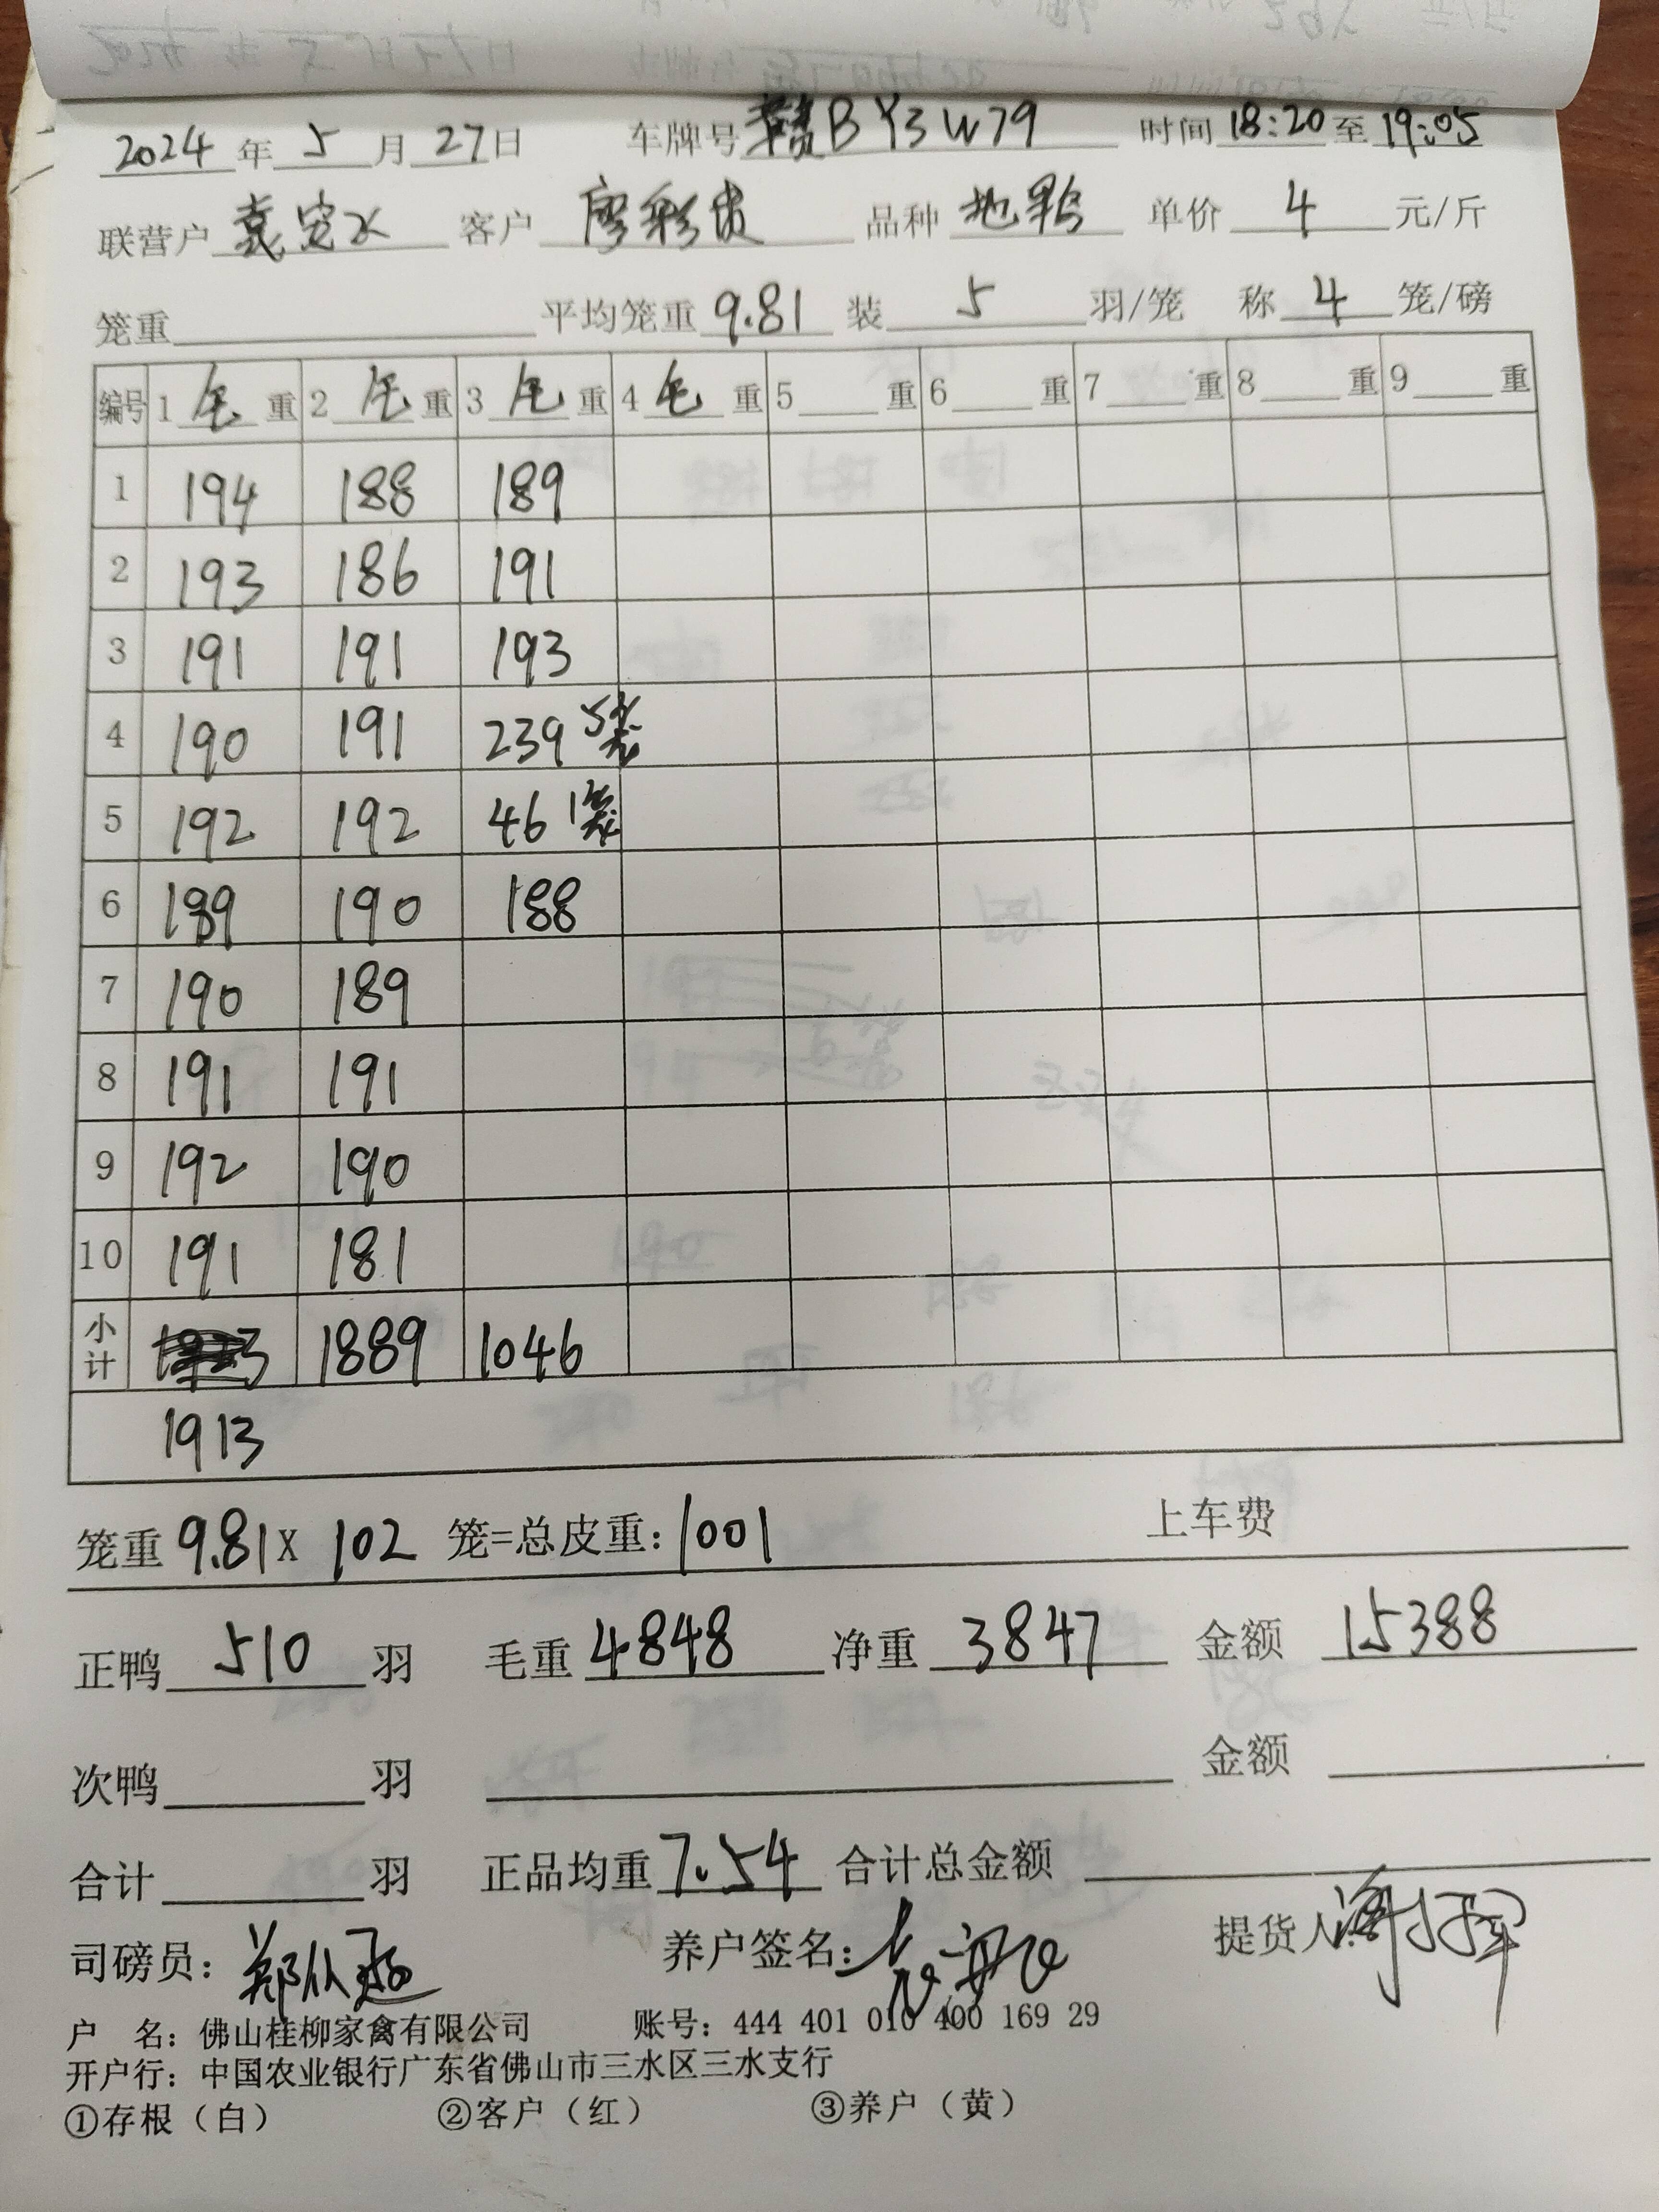 2024 年 5 月 27 日 车牌号 赣B Y3W79 时间 18:20 至 19:05
联营户 袁定水 客户 廖彩贵 品种 单价 4 元/斤
笼重 平均笼重 9.81 装 5 羽/笼 称 4 笼/磅
编号 1 毛 重 2 毛 重 3 毛 重 4 毛 重 5 重 6 重 7 重 8 重 9 重
1 194 188 189
2 193 186 191
3 191 191 193
4 190 191 239 5笼
5 192 192 46 1笼
6 189 190 188
7 190 189
8 191 191
9 192 190
10 191 181
小计 1889 1046
1913
笼重 9.81 X 102 笼=总皮重: 1001 上车费
正鸭 510 羽 毛重 4848 净重 3847 金额 15388
次鸭 羽 金额
合计 羽 正品均重 7.54 合计总金额
司磅员: 养户签名: 提货人
户 名: 佛山桂柳家禽有限公司 账号: 444 401 010 400 169 29
开户行: 中国农业银行广东省佛山市三水区三水支行
①存根（白） ②客户（红） ③养户（黄）